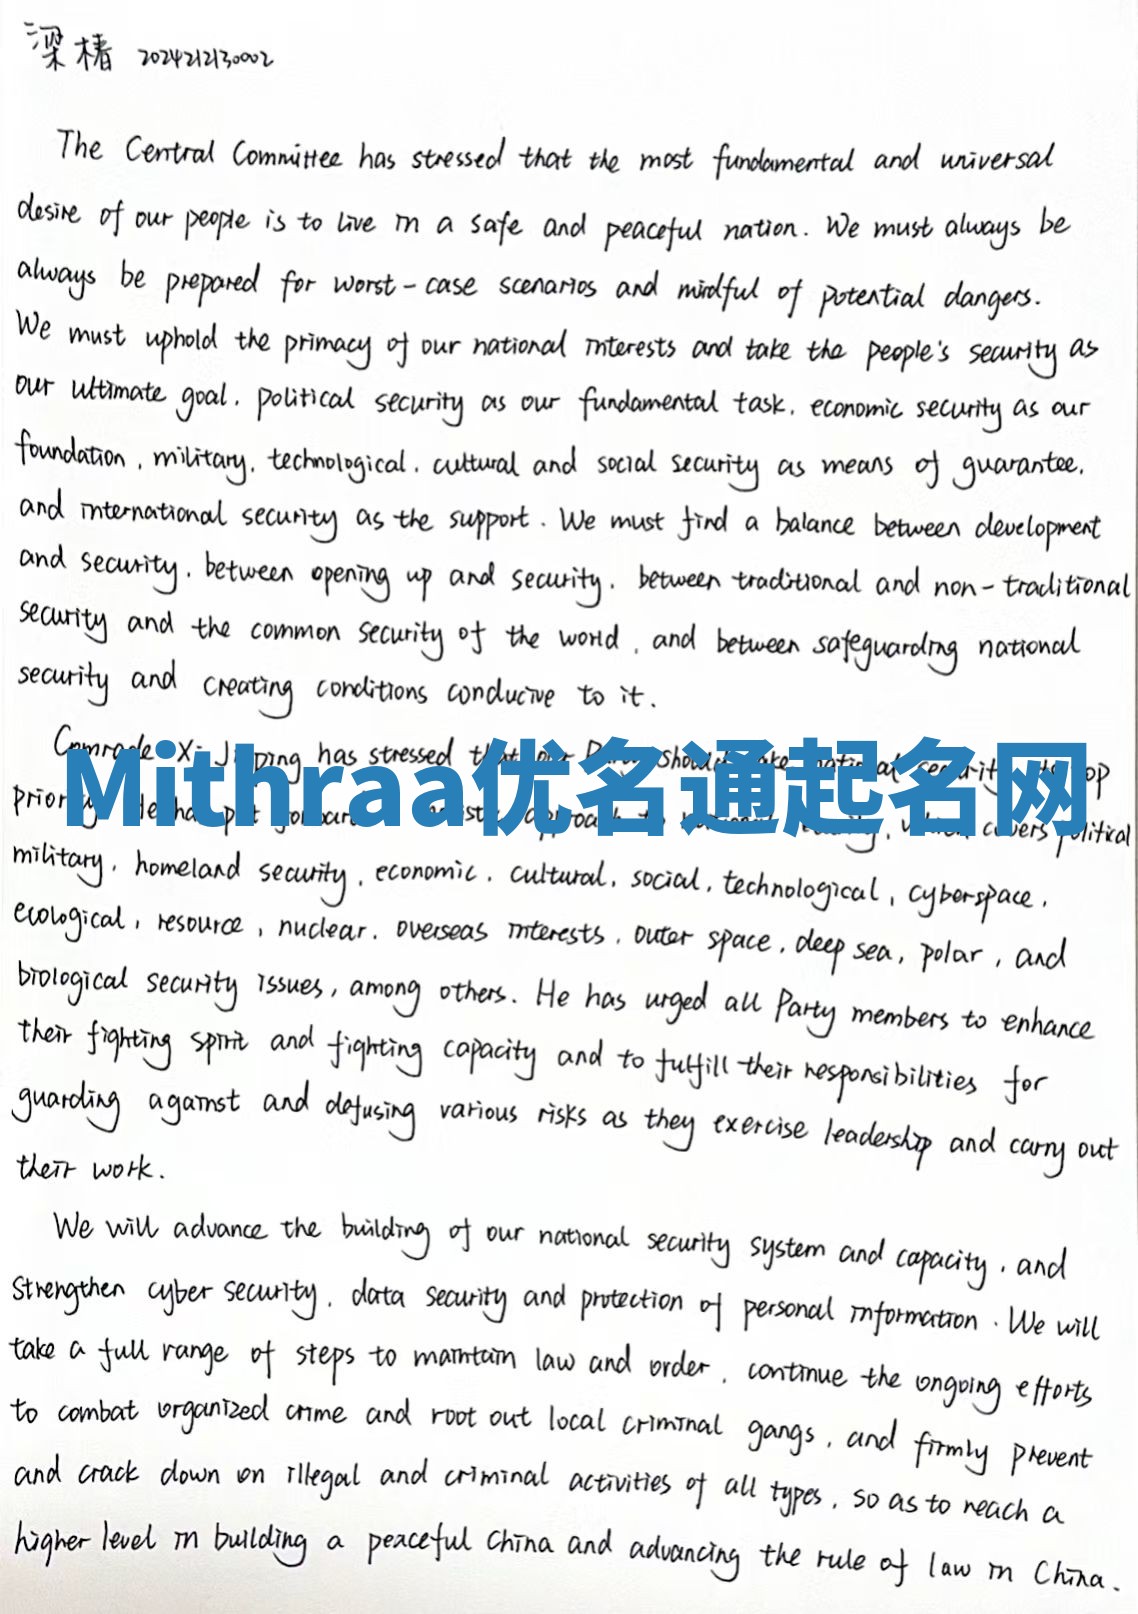 梁椿 2024212130002
The Central Committee has stressed that the most fundamental and universal
desire of our people is to live in a safe and peaceful nation. We must always be
always be prepared for worst-case scenarios and mindful of potential dangers.
We must uphold the primacy of our national interests and take the people's security as
our ultimate goal, political security as our fundamental task, economic security as our
foundation, military, technological, cultural and social security as means of guarantee,
and international security as the support. We must find a balance between development
and security, between opening up and security, between traditional and non-traditional
security and the common security of the world, and between safeguarding national
security and creating conditions conducive to it.
Comrade Xi Jinping has stressed that our should national security top
Mithraa优名通起名网
covers political
military, homeland security, economic, cultural, social, technological, cyberspace,
ecological, resource, nuclear, overseas interests, outer space, deep sea, polar, and
biological security issues, among others. He has urged all Party members to enhance
their fighting spirit and fighting capacity and to fulfill their responsibilities for
guarding against and defusing various risks as they exercise leadership and carry out
their work.
We will advance the building of our national security system and capacity, and
strengthen cyber security, data security and protection of personal information. We will
take a full range of steps to maintain law and order, continue the ongoing efforts
to combat organized crime and root out local criminal gangs, and firmly prevent
and crack down on illegal and criminal activities of all types, so as to reach a
higher level in building a peaceful China and advancing the rule of law in China.